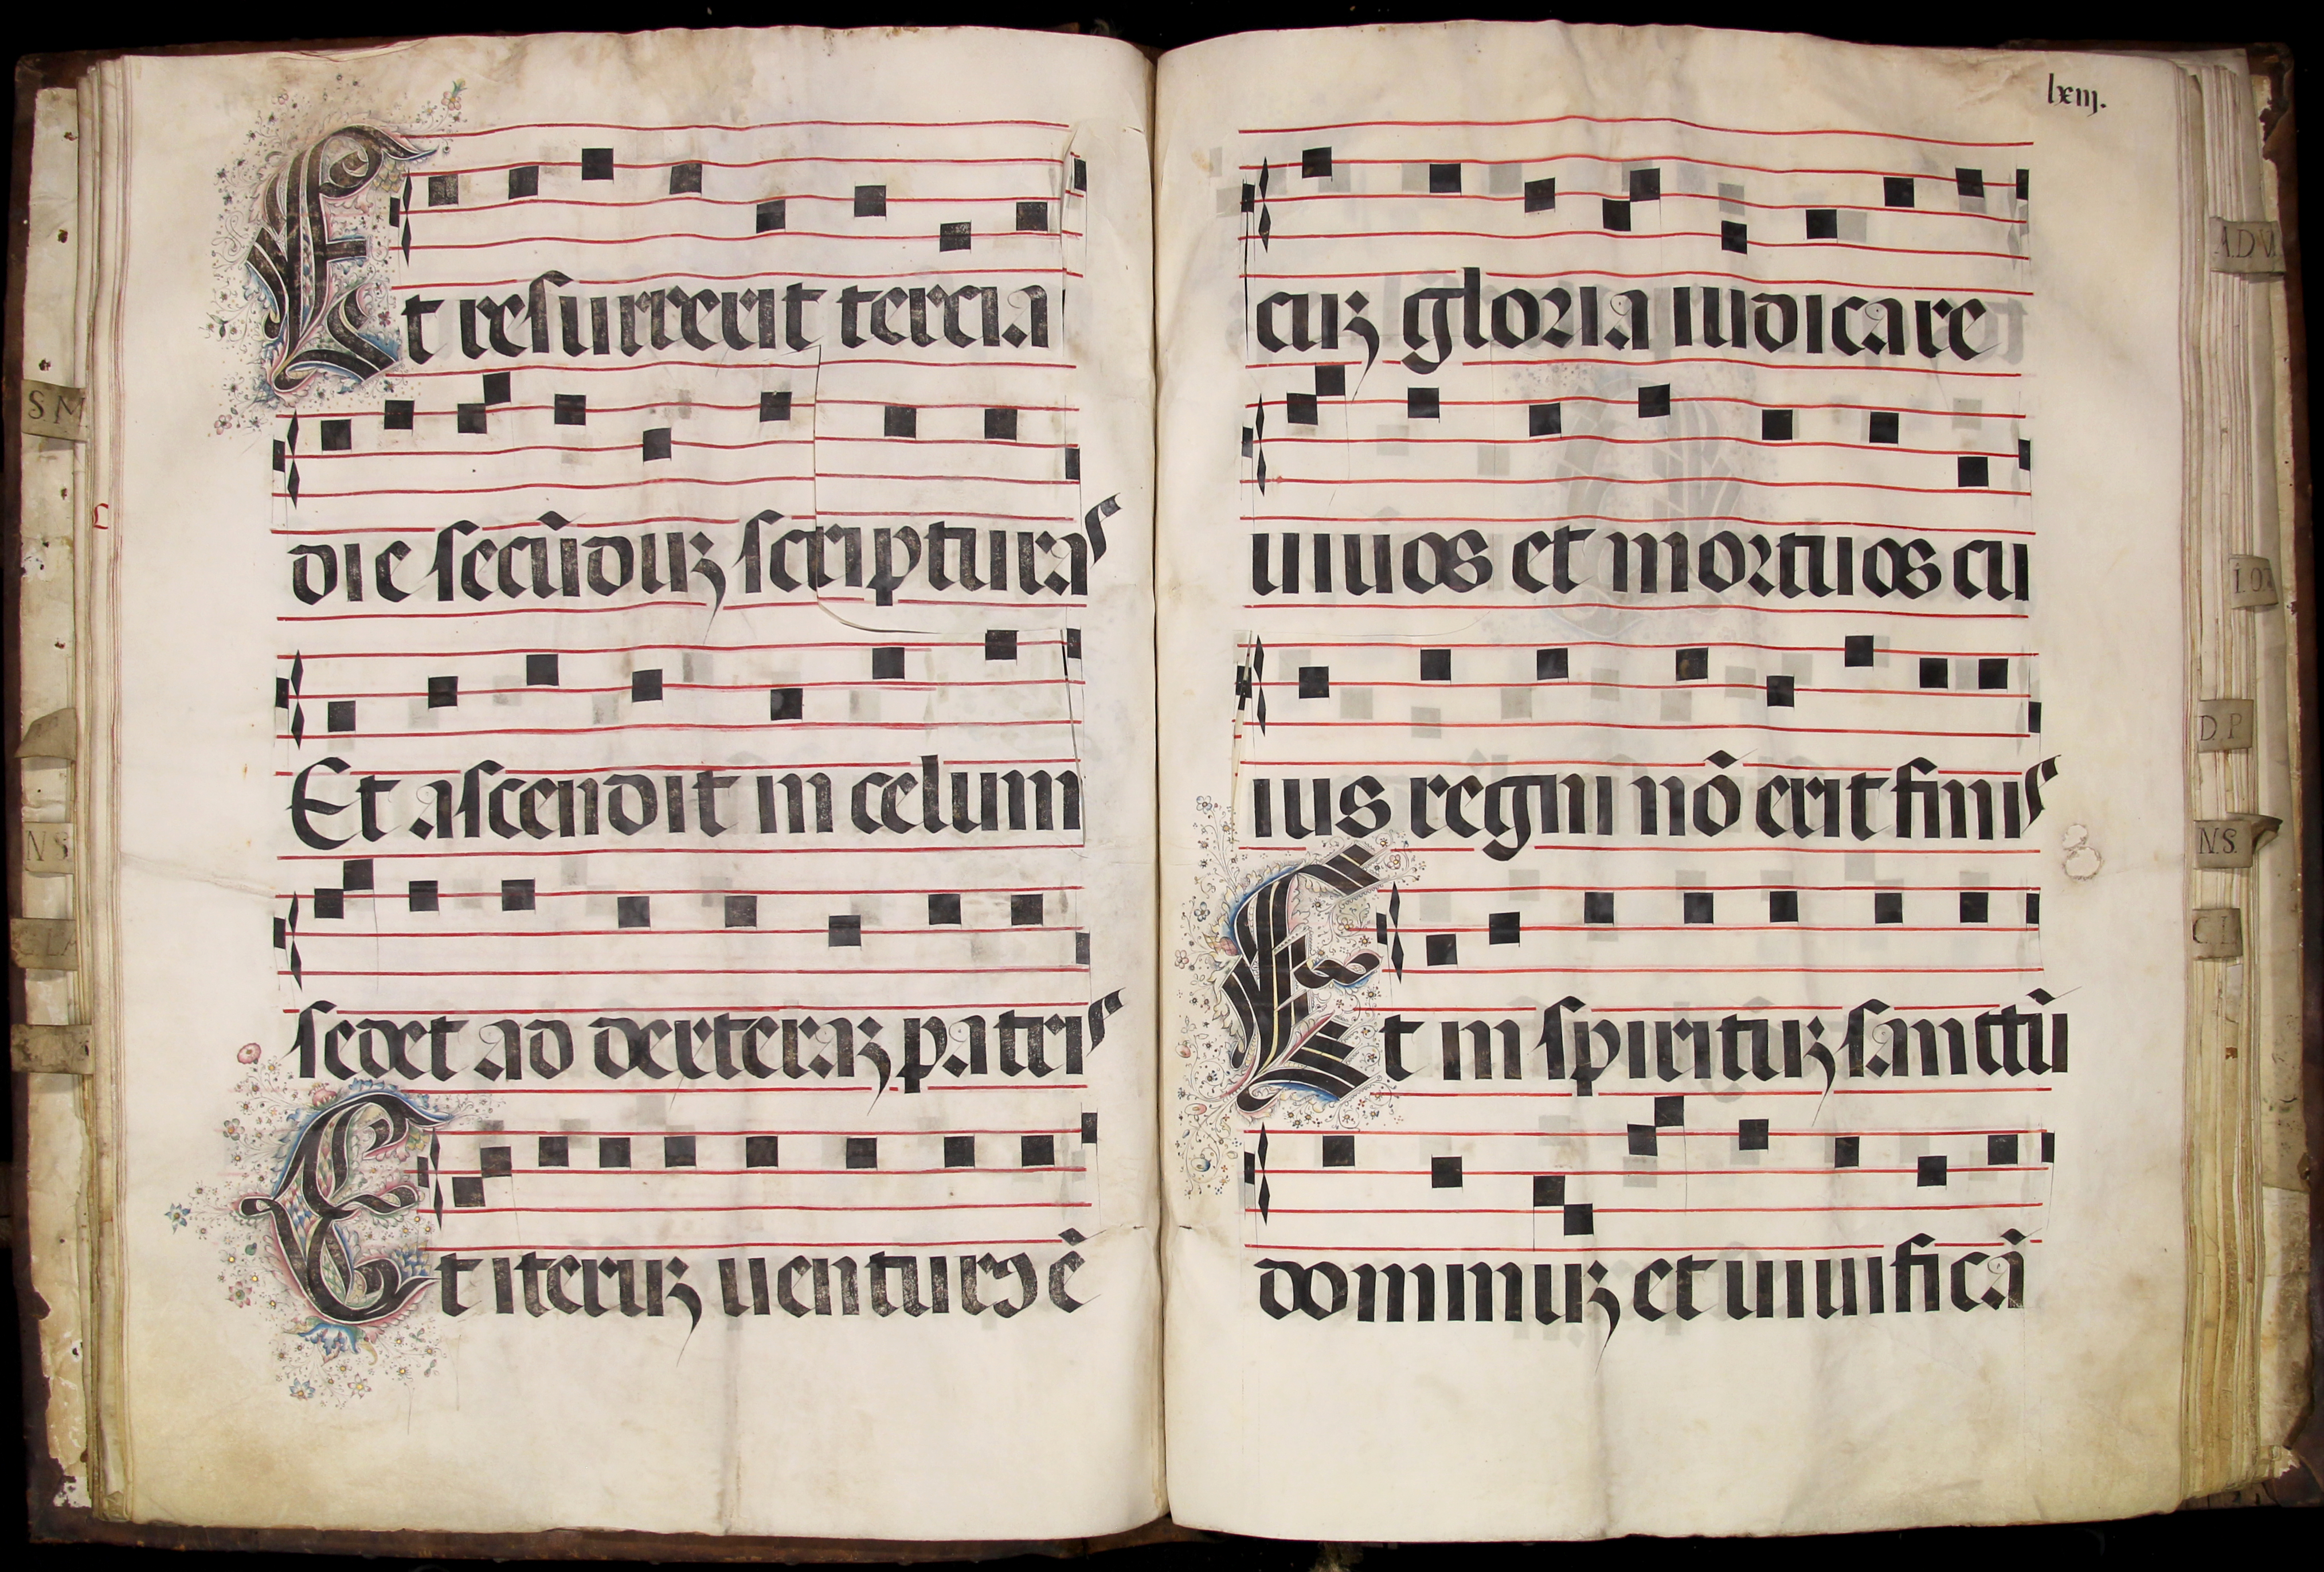 Et resurrexit tercia
die secūduz scripturas
Et ascendit in celum
sedet ad dexteraz patris
Et iteruz uenturꝯ ē
lxiij.
cuz gloria iudicare
uiuos et mortuos cu
ius regni nō erit finis
Et in spirituz sanctū
dominuz et uiuificā
S M
N S
A.D.V.
D P
N.S.